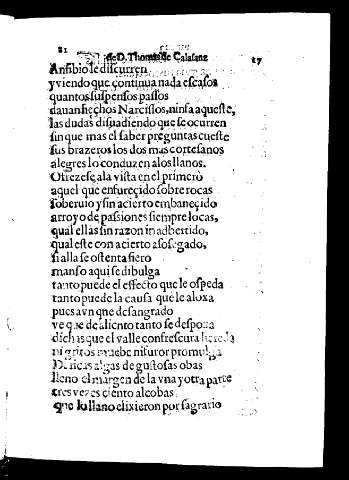 21
de D. Thomas de Calasanz 27
Anfibio le discurren
y viendo que continua nada escasos
quantos suspensos passos
dauan hechos Narcissos, ninfa aqueste,
las dudas disuadiendo que se ocurren
sin que mas el saber preguntas cueste
sus brazeros los dos mas cortesanos
alegres lo conduzen a los llanos.
Ofrezese a la vista en el primero
aquel que enfureçido sobre rocas
soberuio y sin acierto embaneçido
arroyo de passiones siempre locas,
qual ellas sin razon inadbertido,
qual este con acierto asosegado,
si alla se ostenta fiero
manso aqui se dibulga
tanto puede el effecto que le ospeda
tanto puede la causa que le aloxa
pues avn que desangrado
ve que de aliento tanto se despoxa
dichas que el valle con frescura hereda
ni gritos muebe ni furor promulga
De ricas algas de gustosas obas
lleno el margen de la vna y otra parte
tres vezes ciento alcobas
que lo llano elixieron por sagrario